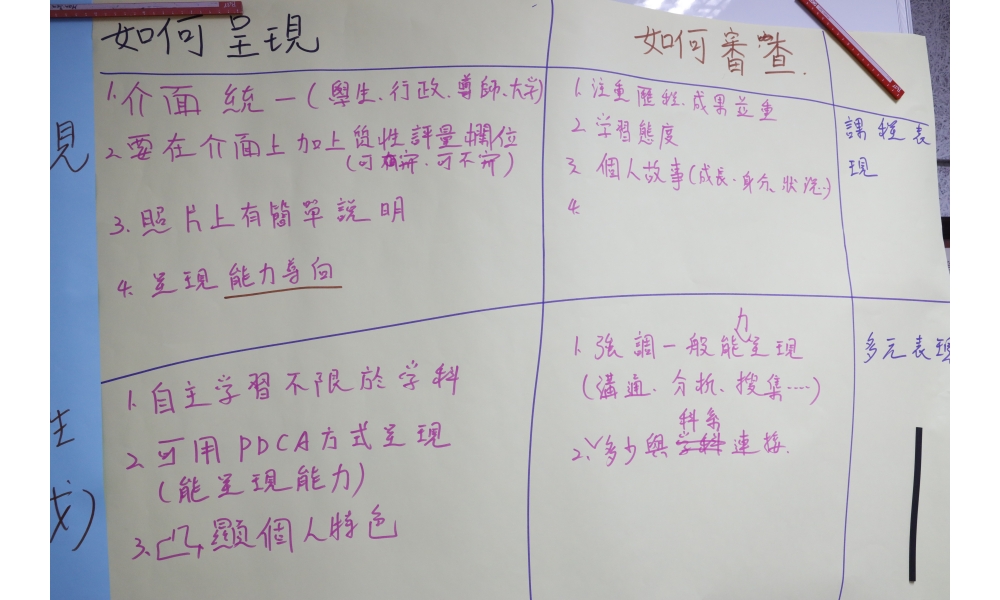 如何呈現
1. 介面統一(學生、行政、導師、大学)
2. 要在介面上加上質性評量欄位
(可有寫、可不寫)
3. 照片上有簡單說明
4. 呈現能力導向
如何審查.
1. 注重歷程、成果並重
2. 学習態度
3. 個人故事(成長、身分、狀況、)
4.
課程表
現
1. 自主学習不限於学科
2. 可用PDCA方式呈現
(能呈現能力)
3. 凸顯個人特色
1. 強調一般能力呈現
(溝通、分析、搜集……)
2. 多少與科系連接.
多元表現
見
生